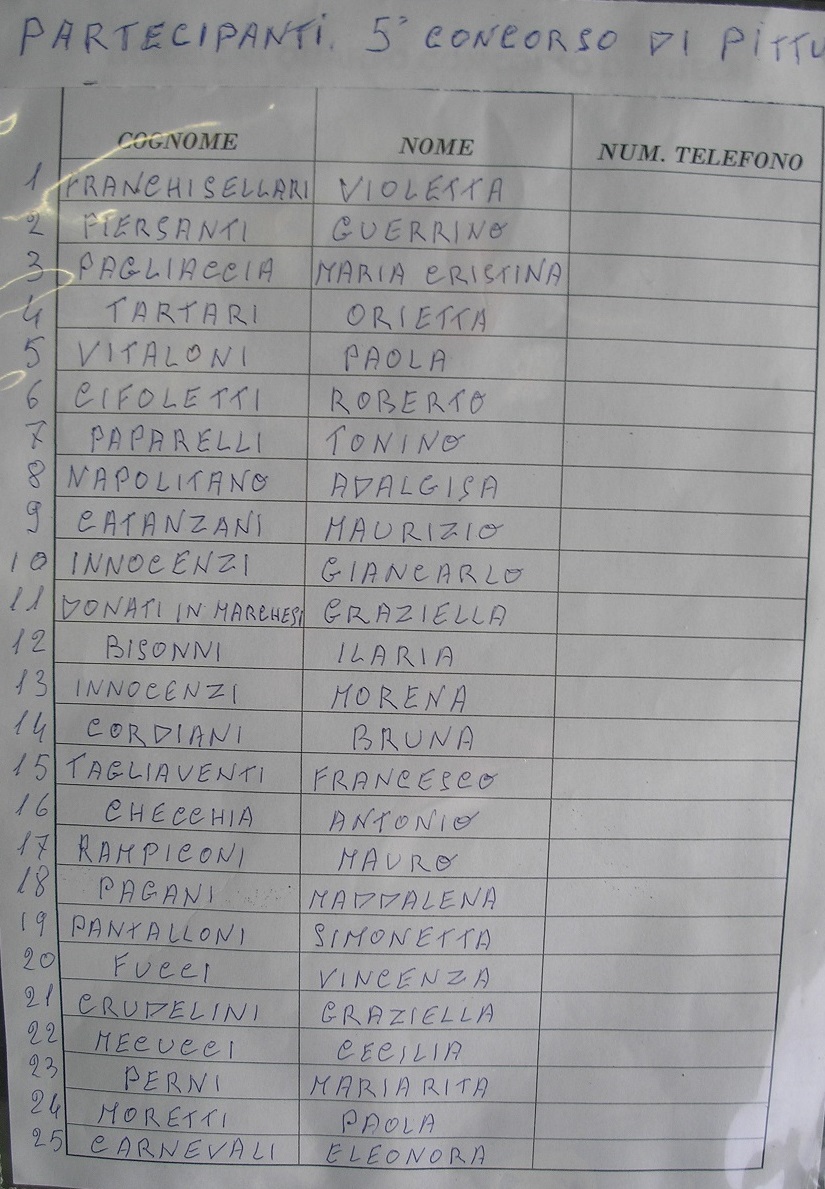 PARTECIPANTI. 5° CONCORSO DI PITTU
COGNOME NOME NUM. TELEFONO
1 FRANCHISELLARI VIOLETTA
2 PIERSANTI GUERRINO
3 PAGLIACCIA MARIA CRISTINA
4 TARTARI ORIETTA
5 VITALONI PAOLA
6 CIFOLETTI ROBERTO
7 PAPARELLI TONINO
8 NAPOLITANO ADALGISA
9 CATANZANI MAURIZIO
10 INNOCENZI GIANCARLO
11 DONATI IN MARCHESI GRAZIELLA
12 BISONNI ILARIA
13 INNOCENZI MORENA
14 CORDIANI BRUNA
15 TAGLIAVENTI FRANCESCO
16 CHECCHIA ANTONIO
17 RAMPICONI MAURO
18 PAGANI MADDALENA
19 PANTALLONI SIMONETTA
20 FUCCI VINCENZA
21 CRUDELINI GRAZIELLA
22 MECUCCI CECILIA
23 PERNI MARIA RITA
24 MORETTI PAOLA
25 CARNEVALI ELEONORA